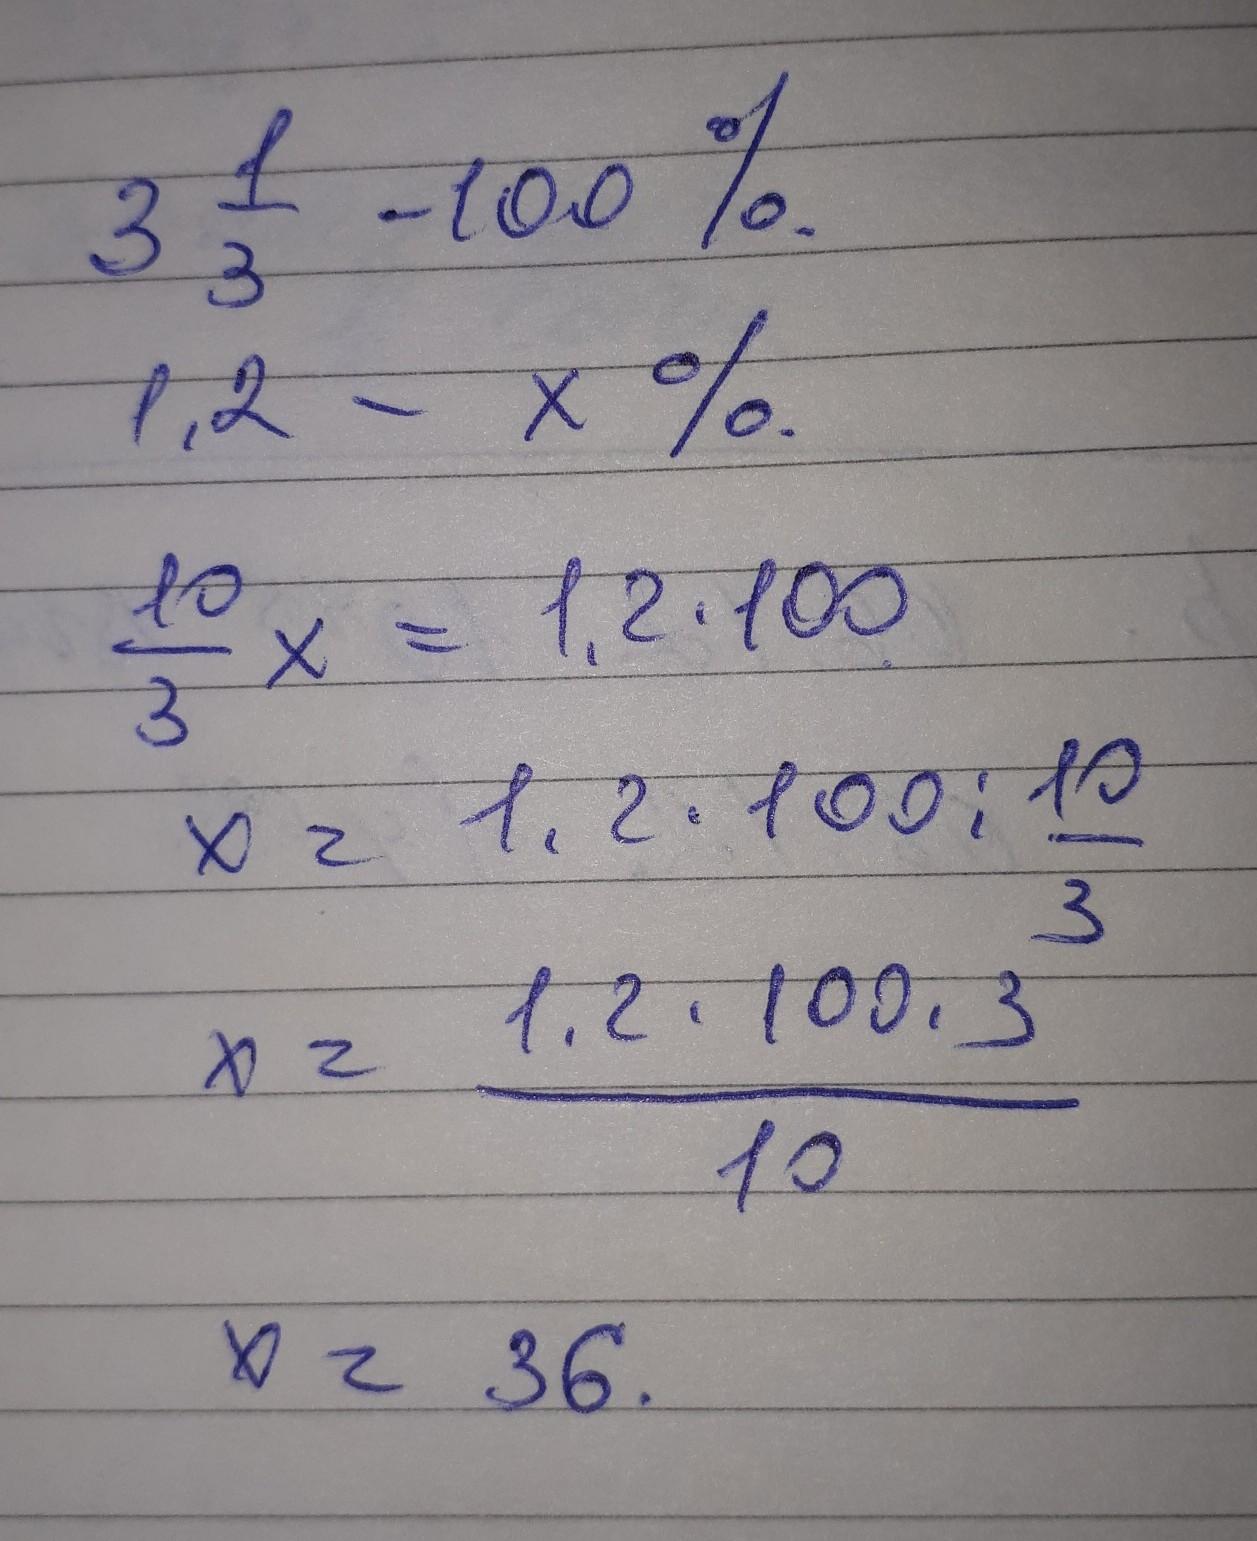 3 1/3 - 100 %.
1,2 - x %.
10/3 x = 1,2 · 100
x = 1,2 · 100 : 10/3
x = 1,2 · 100 · 3 / 10
x = 36.